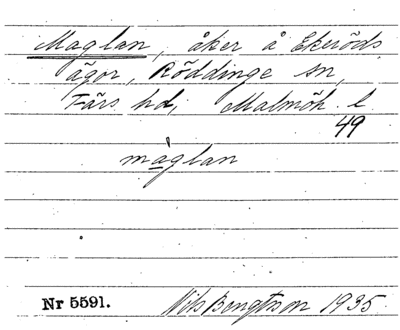 Maglan, åker å Ekeröds
ägor, Röddinge sn,
Färs hd, Malmöh. l
49
màglan
Nr 5591. Nils Bengtson 1935